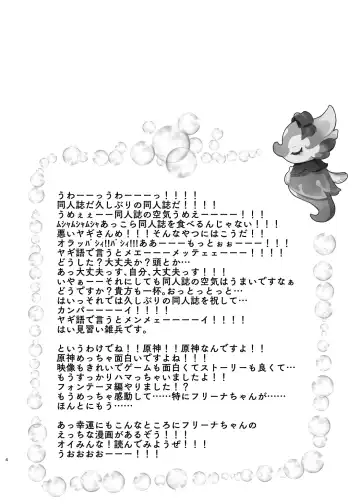 うわーーっうわーーーっ！！！！
同人誌だ久しぶりの同人誌だ！！！！
うめぇぇーー同人誌の空気うめえーーーー！！！
ﾑｼｬﾑｼｬﾑｼｬあっこら同人誌を食べるんじゃない！！！
悪いヤギさんめ！！！そんなやつにはこうだ！！
オラッﾊﾞｼｨ!!ﾊﾞｼｨ!!!ああーーーもっとぉぉーーー！！！
ヤギ語で言うとメエーーーメッテェェーーー！！！！
どうした？大丈夫か？頭とか…
あっ大丈夫っす、自分、大丈夫っす！！！
いやぁーーそれにしても同人誌の空気はうまいですなぁ
どうですか？貴方も一杯。おっとっとっと…
はいっそれでは久しぶりの同人誌を祝して…
カンパーーーーイ！！！！
ヤギ語で言うとメンメェーーーーイ！！！！
はい見習い雑兵です。
というわけでね！！原神！！原神なんですよ！！
原神めっちゃ面白いですよね！！！
映像もきれいでゲームも面白くてストーリーも良くて…
もうすっかりハマっちゃいましたよ！！
フォンテーヌ編やりました！？
もうめっちゃ感動して……特にフリーナちゃんが……
ほんとにもう……
あっ幸運にもこんなところにフリーナちゃんの
えっちな漫画があるぞう！！！
オイみんな！読んでみようぜ！！！
うおおおおーーー！！！